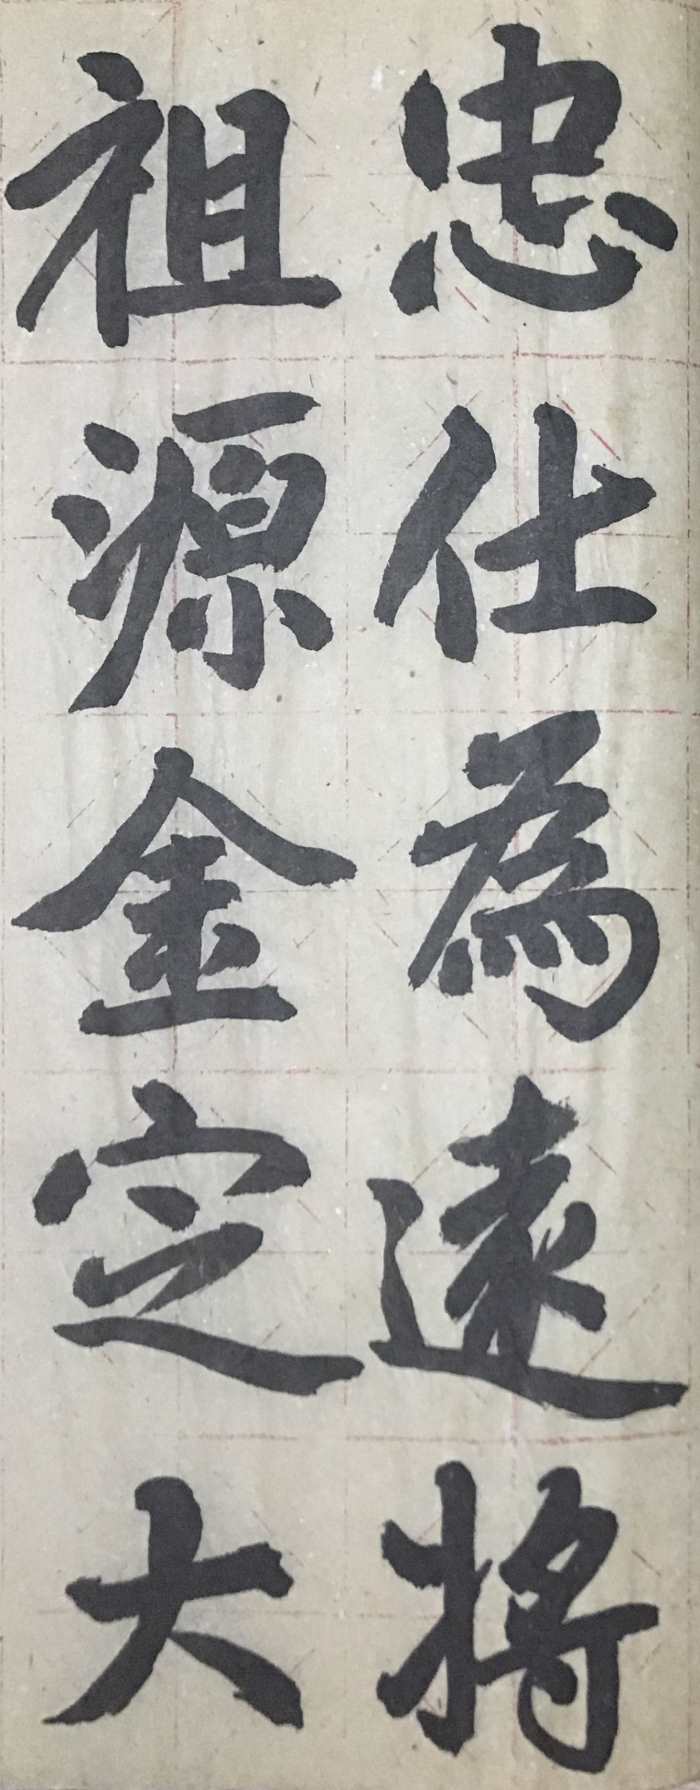 忠仕為遠將
祖源金定大